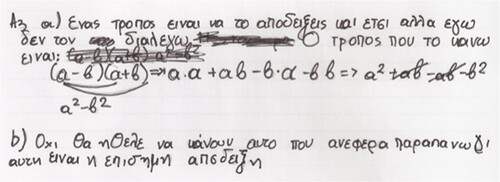 Αz α) Ενας τροπος ειναι να το αποδειξεις και ετσι αλλα εγω
δεν τον διαλεγω Ο τροπος που το κανω
ειναι:
(α-β)(α+β) => α·α + αβ - β·α - ββ => α² + αβ - αβ - β²
α²-β²
b) Οχι θα ηθελε να κανουν αυτο που ανεφερα παραπανω γι
αυτη ειναι η επισημη απσδειξη